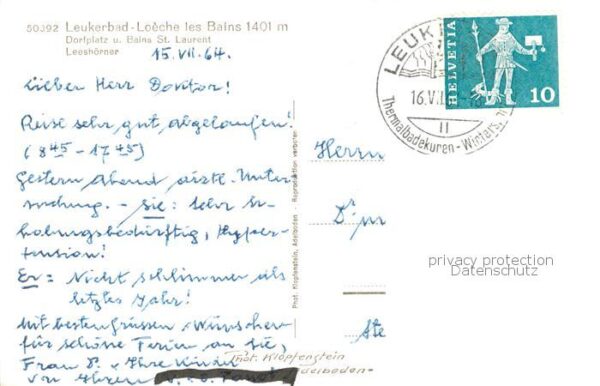 50392 Leukerbad-Loèche les Bains 1401 m
Dorfplatz u. Bains St. Laurent
Leeshörner
15. VII. 64.
Lieber Herr Doktor!
Reise sehr gut abgelaufen!
(8 45 - 17 45)
Gestern Abend ärztl. Unter-
suchung. - Sie: Sehr er-
holungsbedürftig, Hyper-
tension!
Er = Nicht schlimmer als
letztes Jahr!
Mit besten Grüssen + Wünschen
für schöne Ferien an Sie,
Frau D. + Ihre Kinder
von Ihrem
Phot. Klopfenstein, Adelboden - Reproduktion verboten
Phot. Klopfenstein
Adelboden
LEUK
16. VII.
11
Thermalbadekuren - Winters
HELVETIA
10
Herrn
Dr
privacy protection
Datenschutz